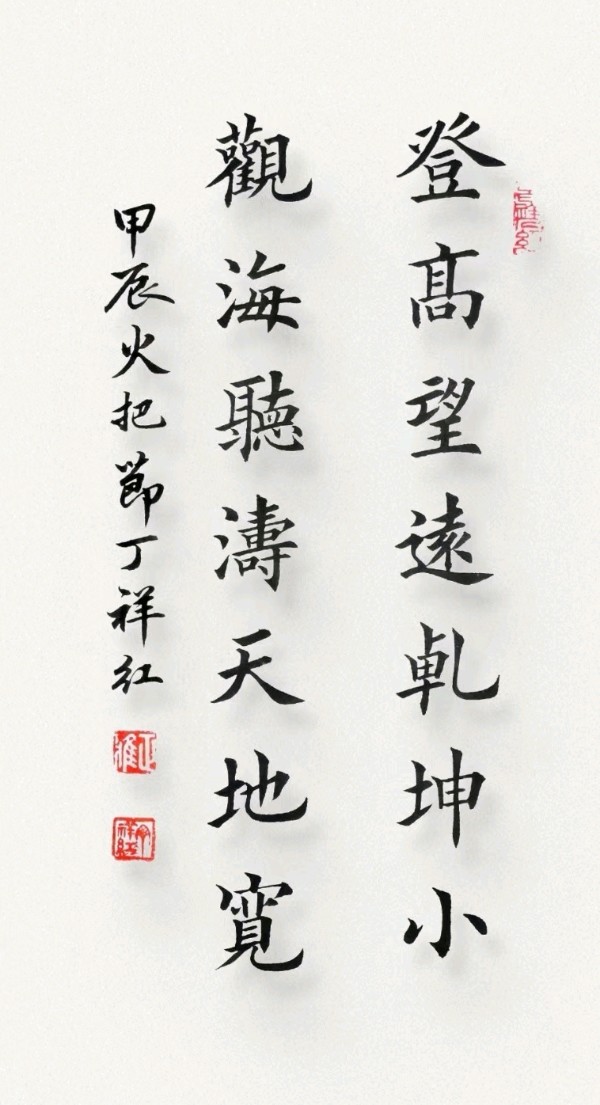 登高望遠乹坤小
觀海聽濤天地寬
甲辰火把節丁祥红